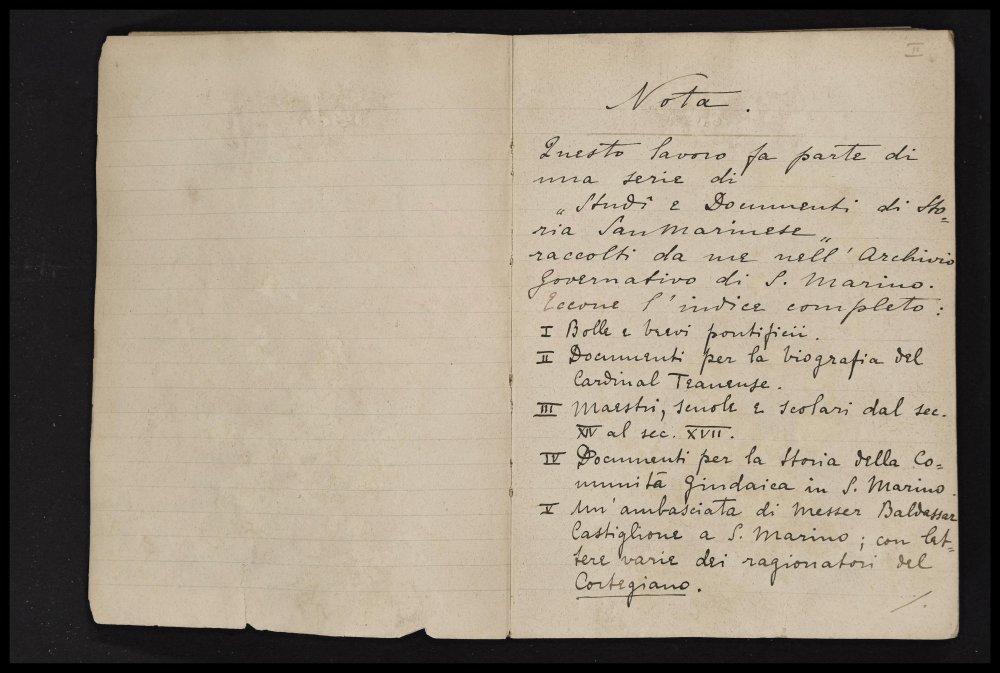 II
Nota.
Questo lavoro fa parte di
una serie di
„ Studî e Documenti di Sto=
ria San Marinese „
raccolti da me nell' Archivio
Governativo di S. Marino.
Eccone l' indice completo:
I Bolle e brevi pontificii.
II Documenti per la biografia del
Cardinal Teanense.
III Maestri, scuole e scolari dal sec.
XIV al sec. XVII.
IV Documenti per la Storia della Co=
munità Giudaica in S. Marino.
V Un' ambasciata di Messer Baldassar
Castiglione a S. Marino; con let=
tere varie dei ragionatori del
Cortegiano.